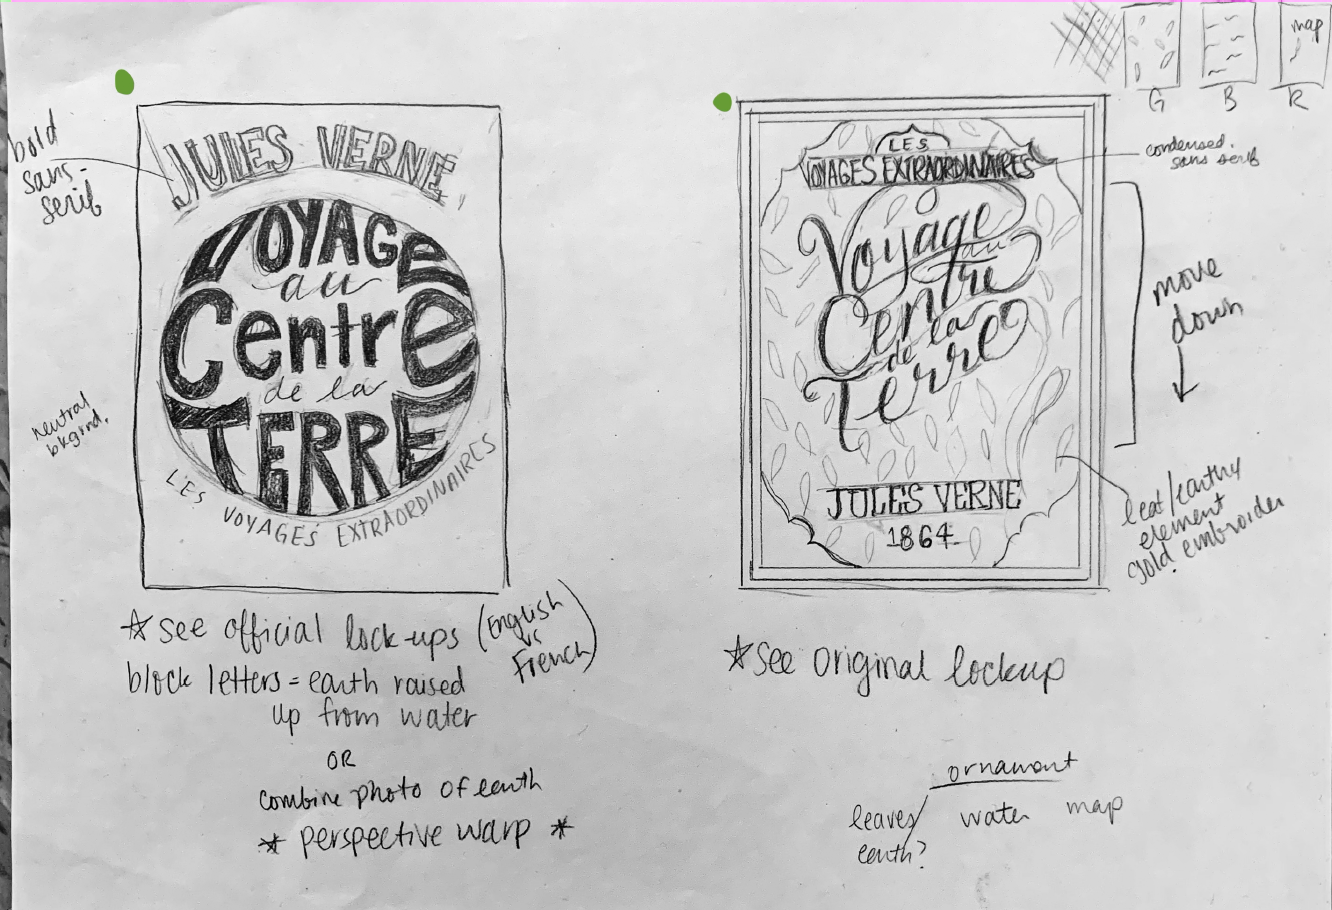 bold
sans-
serif
JULES VERNE
VOYAGE
au
Centre
de la
TERRE
LES VOYAGES EXTRAORDINAIRES
neutral
bkgrnd.
☆ see official lock-ups (English
vs
French)
block letters = earth raised
up from water
OR
combine photo of earth
* perspective warp *
map
G B R
LES
VOYAGES EXTRAORDINAIRES
condensed.
sans serif
Voyage
au
Centre
de la
Terre
move
down
JULES VERNE
1864
leaf/earthy
element
gold embroider
☆ see original lockup
ornament
leaves/ water map
earth?